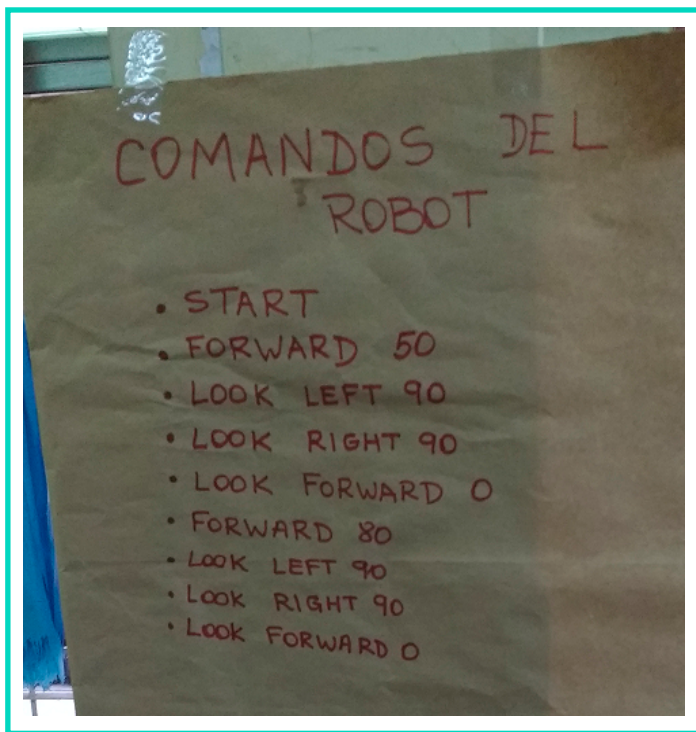 COMANDOS DEL
ROBOT
• START
• FORWARD 50
• LOOK LEFT 90
• LOOK RIGHT 90
• LOOK FORWARD 0
• FORWARD 80
• LOOK LEFT 90
• LOOK RIGHT 90
• LOOK FORWARD 0